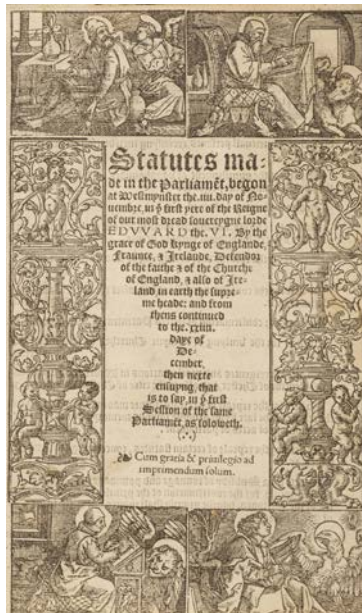 Statutes ma-
de in the Parliamēt, begon
at Westmynster the .iiii. day of No-
uembre, in ẏ first yere of the Reigne
of our most dread souereygne lorde
EDVVARD the .VI. By the
grace of God kynge of Englande,
Fraunce, ⁊ Irelande, Defendor
of the faithe ⁊ of the Churche
of England, ⁊ also of Ire-
land in earth the supre-
me heade: and from
thens continued
to the .xxiiii.
daye of
De-
cember,
then nexte
ensuyng, that
is to say, in ẏ first
Session of the same
Parliamēt, as foloweth.
(∴)
❧ Cum gratia & priuilegio ad
imprimendum solum.